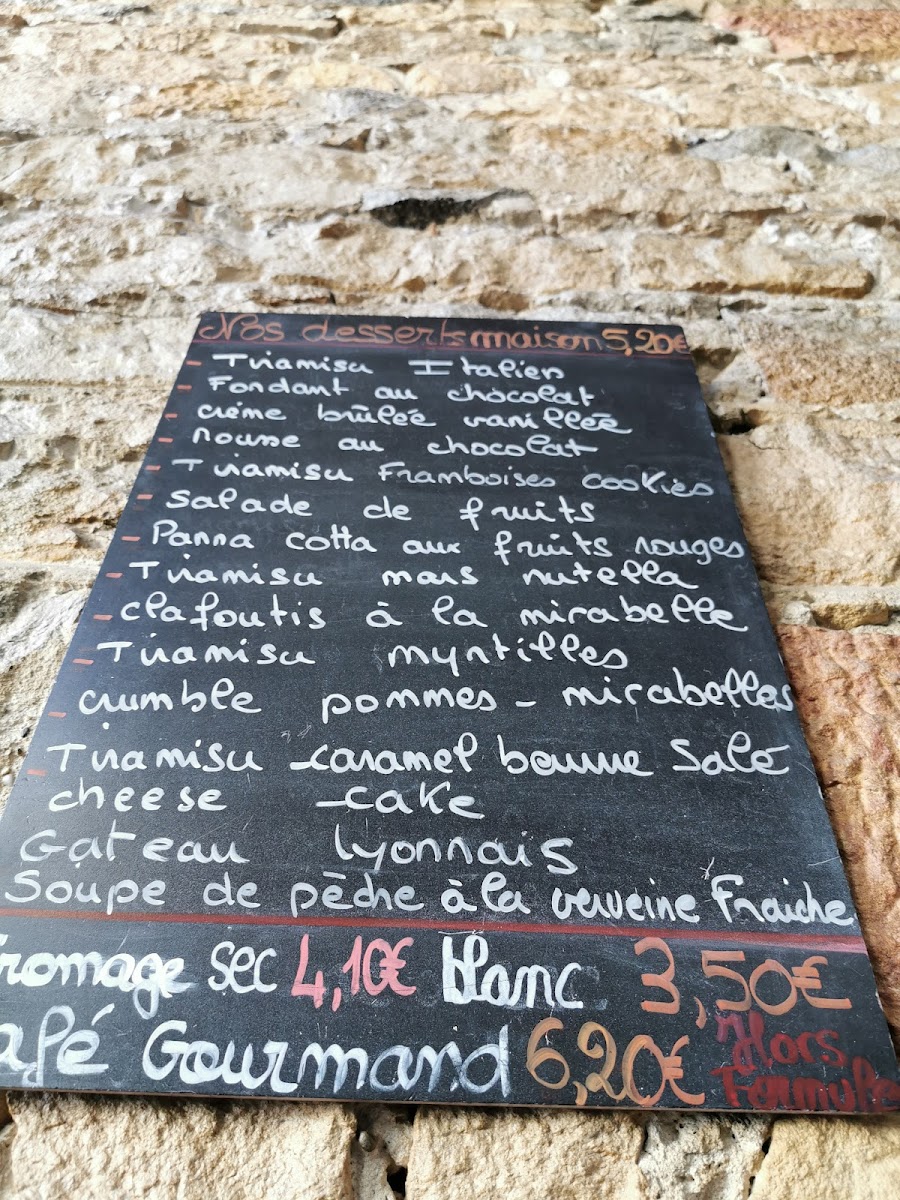 Nos desserts maison 5,20€
- Tiramisu Italien
- Fondant au chocolat
- crème brûlée vanillée
- Mousse au chocolat
- Tiramisu Framboises cookies
- Salade de fruits
- Panna cotta aux fruits rouges
- Tiramisu mars nutella
- clafoutis à la mirabelle
- Tiramisu myrtilles
- crumble pommes - mirabelles
- Tiramisu - caramel beurre salé
cheese - cake
Gateau lyonnais
Soupe de pêche à la verveine Fraiche
Fromage sec 4,10€ blanc 3,50€
Café Gourmand 6,20€ Hors Formule